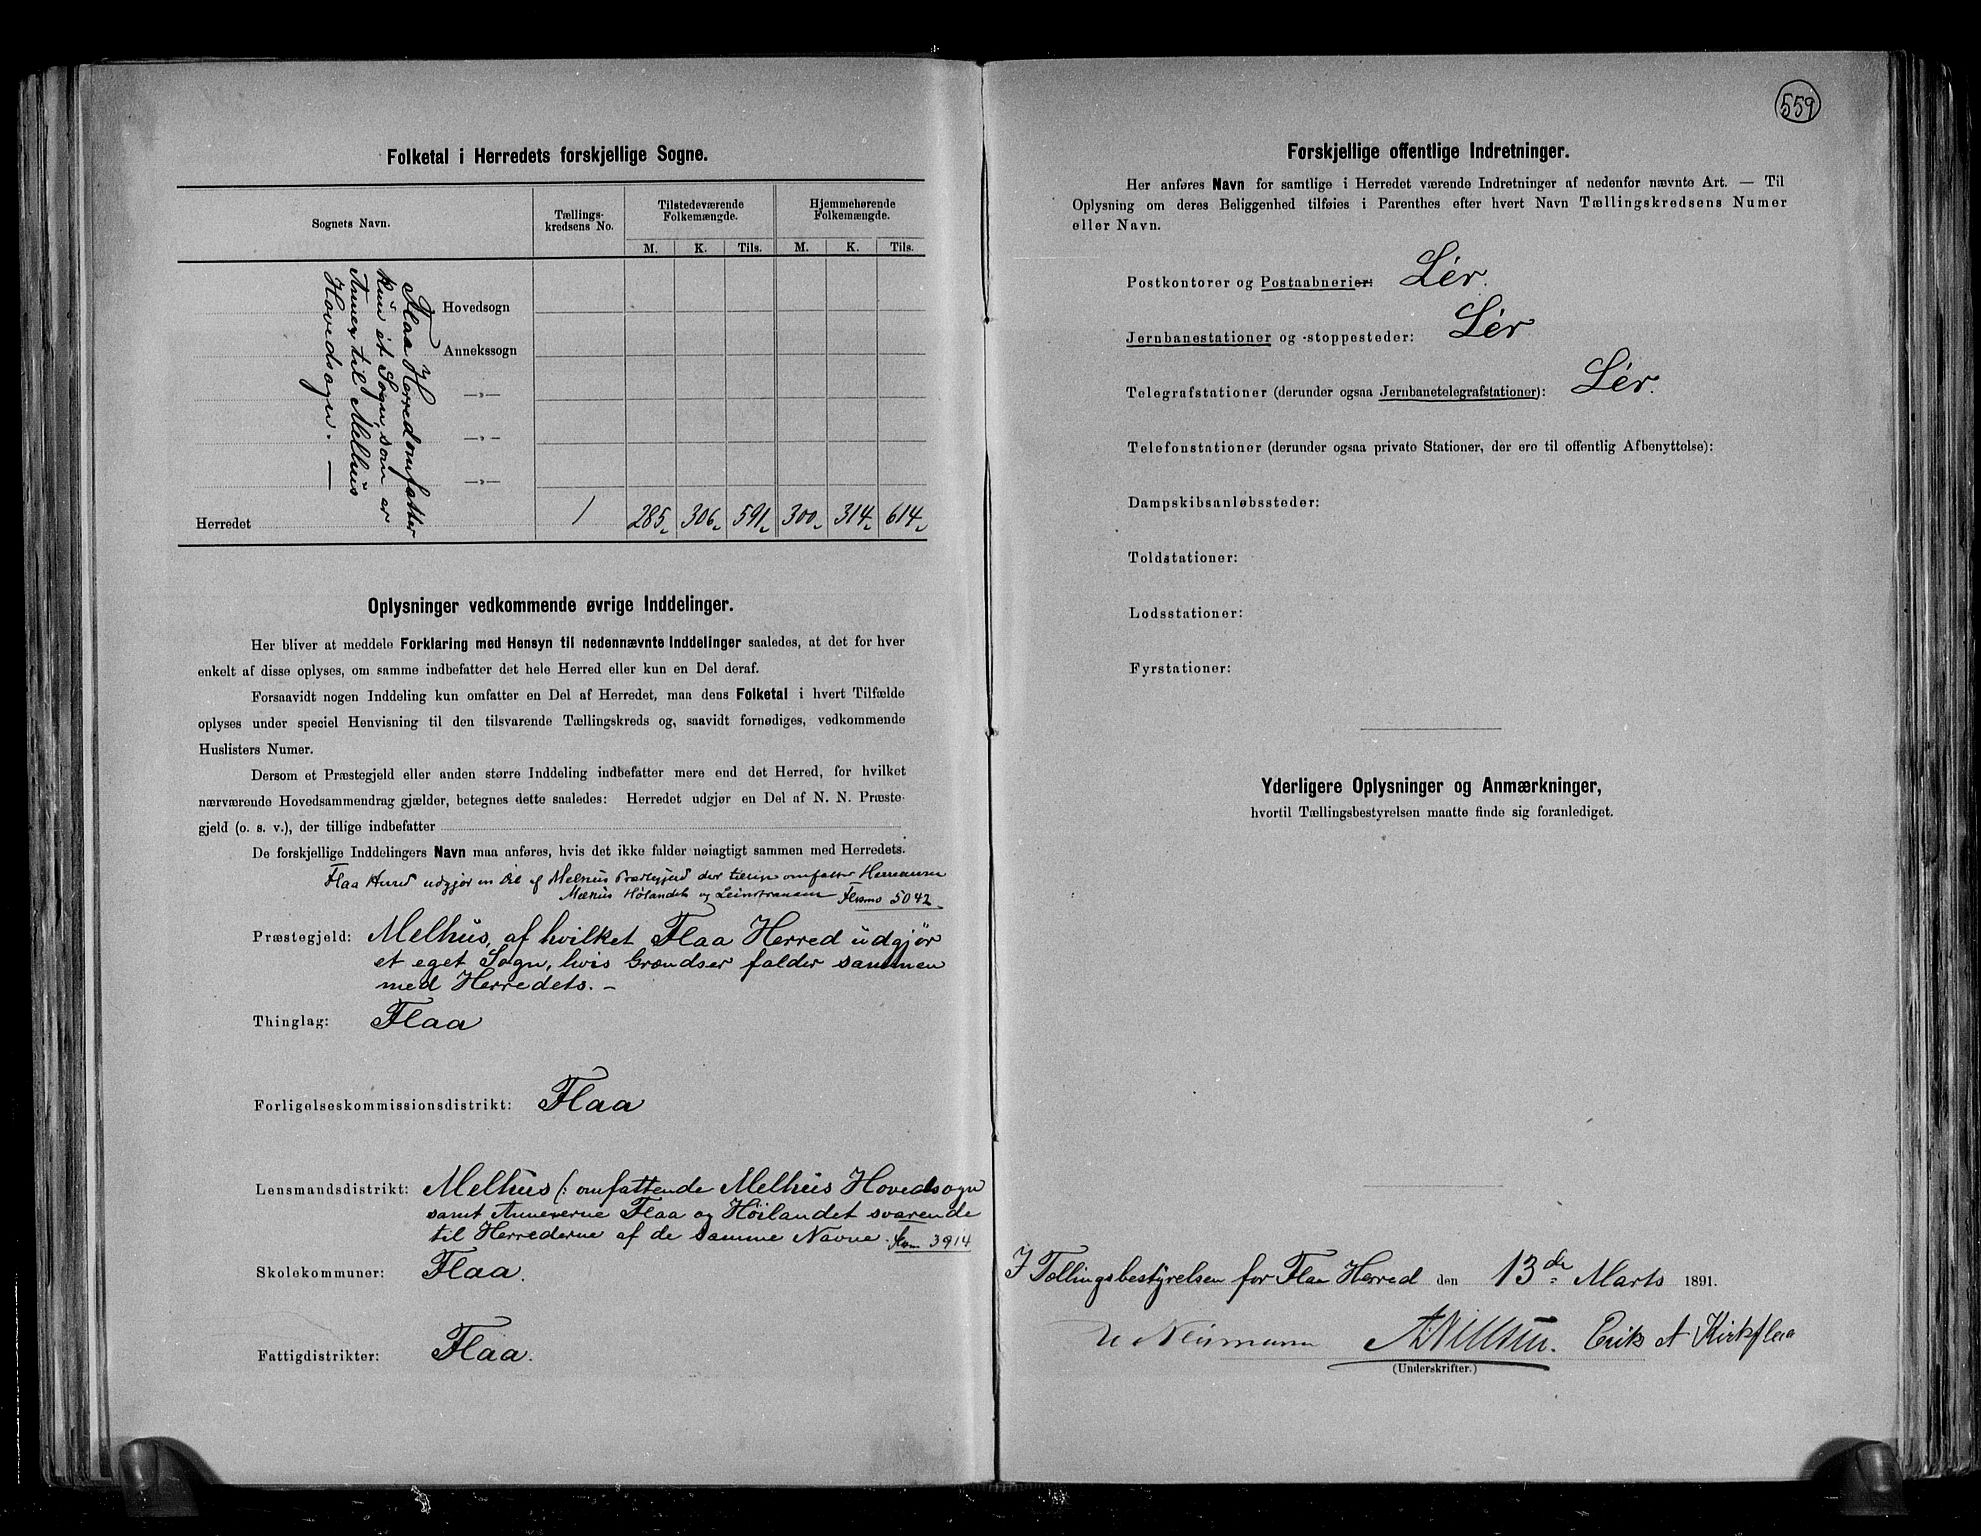 Folketal i Herredets forskjellige Sogne.
Sognets Navn.
Tællings-
kredsens No.
Tilstedeværende
Folkemængde.
Hjemmehørende
Folkemængde.
M. K. Tils. M. K. Tils.
Flaa Herred omfatter
kun ét Sogn, som er
Annex til Melhus
Hovedsogn. —
Hovedsogn
Annekssogn
—„—
—„—
—„—
Herredet 1 285 306 591 300 314 614
Oplysninger vedkommende øvrige Inddelinger.
Her bliver at meddele Forklaring med Hensyn til nedennævnte Inddelinger saaledes, at det for hver
enkelt af disse oplyses, om samme indbefatter det hele Herred eller kun en Del deraf.
Forsaavidt nogen Inddeling kun omfatter en Del af Herredet, maa dens Folketal i hvert Tilfælde
oplyses under speciel Henvisning til den tilsvarende Tællingskreds og, saavidt fornødiges, vedkommende
Huslisters Numer.
Dersom et Præstegjeld eller anden større Inddeling indbefatter mere end det Herred, for hvilket
nærværende Hovedsammendrag gjælder, betegnes dette saaledes: Herredet udgjør en Del af N. N. Præste-
gjeld (o. s. v.), der tillige indbefatter
De forskjellige Inddelingers Navn maa anføres, hvis det ikke falder nøiagtigt sammen med Herredets.
Flaa Herred udgjør en Del af Melhus Præstegjeld der tillige omfatter Herrederne
Melhus Hølandet og Leinstranden 5042
Præstegjeld: Melhus, af hvilket Flaa Herred udgjør
et eget Sogn, hvis Grændser falder sammen
med Herredets. –
Thinglag: Flaa
Forligelseskommissionsdistrikt: Flaa
Lensmandsdistrikt: Melhus (: omfattende Melhus Hovedsogn
samt Annexerne Flaa og Höilandet svarende
til Herrederne af de samme Navne. 3914
Skolekommuner: Flaa.
Fattigdistrikter: Flaa.
559
Forskjellige offentlige Indretninger.
Her anføres Navn for samtlige i Herredet værende Indretninger af nedenfor nævnte Art. — Til
Oplysning om deres Beliggenhed tilføies i Parenthes efter hvert Navn Tællingskredsens Numer
eller Navn.
Postkontorer og Postaabnerier: Lér.
Jernbanestationer og -stoppesteder: Lér
Telegrafstationer (derunder ogsaa Jernbanetelegrafstationer): Lér.
Telefonstationer (derunder ogsaa private Stationer, der ere til offentlig Afbenyttelse):
Dampskibsanløbssteder:
Toldstationer:
Lodsstationer:
Fyrstationer:
Yderligere Oplysninger og Anmærkninger,
hvortil Tællingsbestyrelsen maatte finde sig foranlediget.
I Tællingsbestyrelsen for Flaa Herred den 13de Marts 1891.
Neumann A. Nilsen. Erik A Kirkflaa
(Underskrifter.)